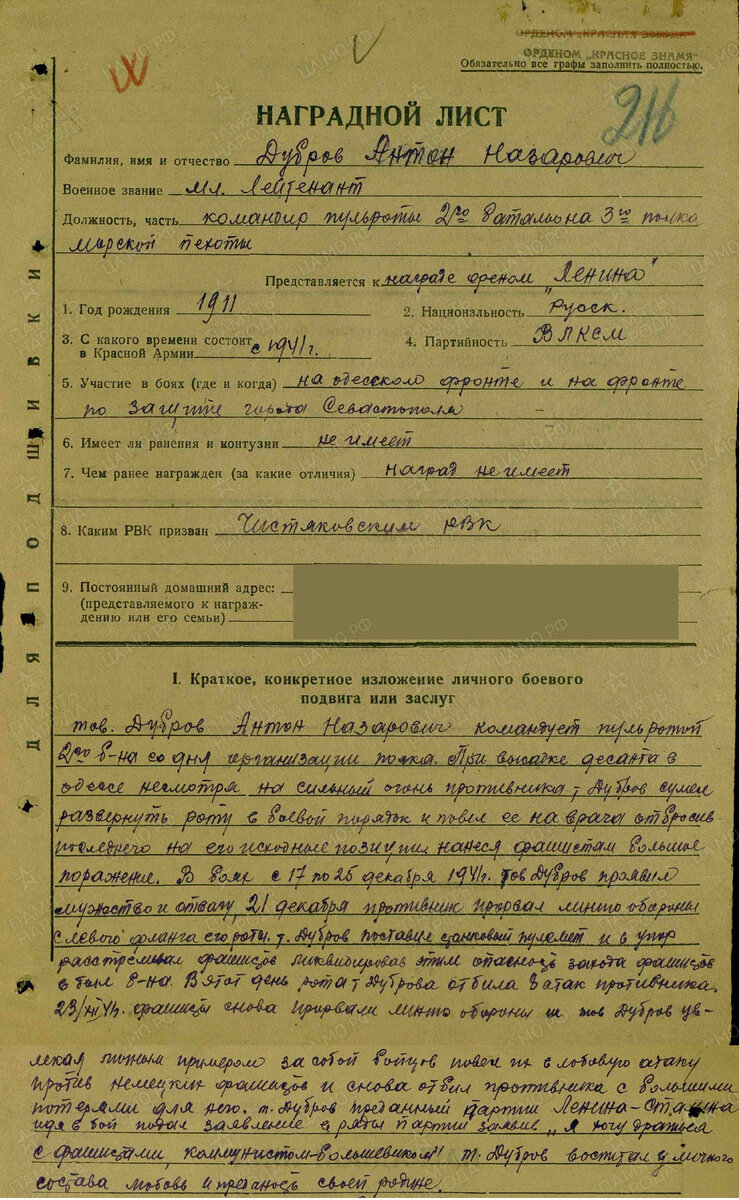 ОРДЕНОМ „КРАСНАЯ ЗВЕЗДА“
ОРДЕНОМ „КРАСНОЕ ЗНАМЯ“
Обязательно все графы заполнить полностью.
216
НАГРАДНОЙ ЛИСТ
Фамилия, имя и отчество Дубров Антон Назарович
Военное звание мл. Лейтенант
Должность, часть командир пульроты 2го батальона 3го полка
морской пехоты
Представляется к награде орденом „Ленина“
1. Год рождения 1911 2. Национальность Русск.
3. С какого времени состоит
в Красной Армии с 1941г. 4. Партийность ВЛКСМ
5. Участие в боях (где и когда) на одесском фронте и на фронте
по защите города Севастополя
6. Имеет ли ранения и контузии не имеет
7. Чем ранее награжден (за какие отличия) наград не имеет
8. Каким РВК призван Чистяковским РВК
9. Постоянный домашний адрес:
(представляемого к награж-
дению или его семьи)
ДЛЯ ПОДШИВКИ
I. Краткое, конкретное изложение личного боевого
подвига или заслуг
тов. Дубров Антон Назарович командует пульротой
2го б-на со дня организации полка. При высадке десанта в
одессе несмотря на сильный огонь противника, т Дубров сумел
развернуть роту в боевой порядок и повел ее на врага отбросив-
последнего на его исходные позиции нанеся фашистам большое
поражение. В боях с 17 по 25 декабря 1941г. тов Дубров проявил
мужество и отвагу, 21 декабря противник прорвал линию обороны
с левого фланга его роты. т. Дубров поставил станковый пулемет и в упор
расстреливал фашистов ликвидировав этим опасность захода фашистов
в тыл б-на. В этот день рота т Дуброва отбила 8 атак противника.
23/XII 41г. фашисты снова прорвали линию обороны и тов Дубров ув-
лекая личным примером за собой бойцов повел их в лобовую атаку
против немецких фашистов и снова отбил противника с большими
потерями для него. т. Дубров преданный партии Ленина-Сталина
идя в бой подал заявление в ряды партии заявив „Я хочу драться
с фашистами, коммунистом-большевиком“ т. Дубров воспитал у личного
состава любовь и преданость своей родине.